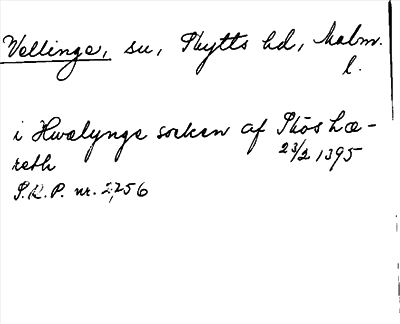 Vellinge, sn, Skytts hd, Malm.
l.
i Hwælynge socken af Skøs hæ-
reth 23/2 1395
S.R.P. nr. 2,256